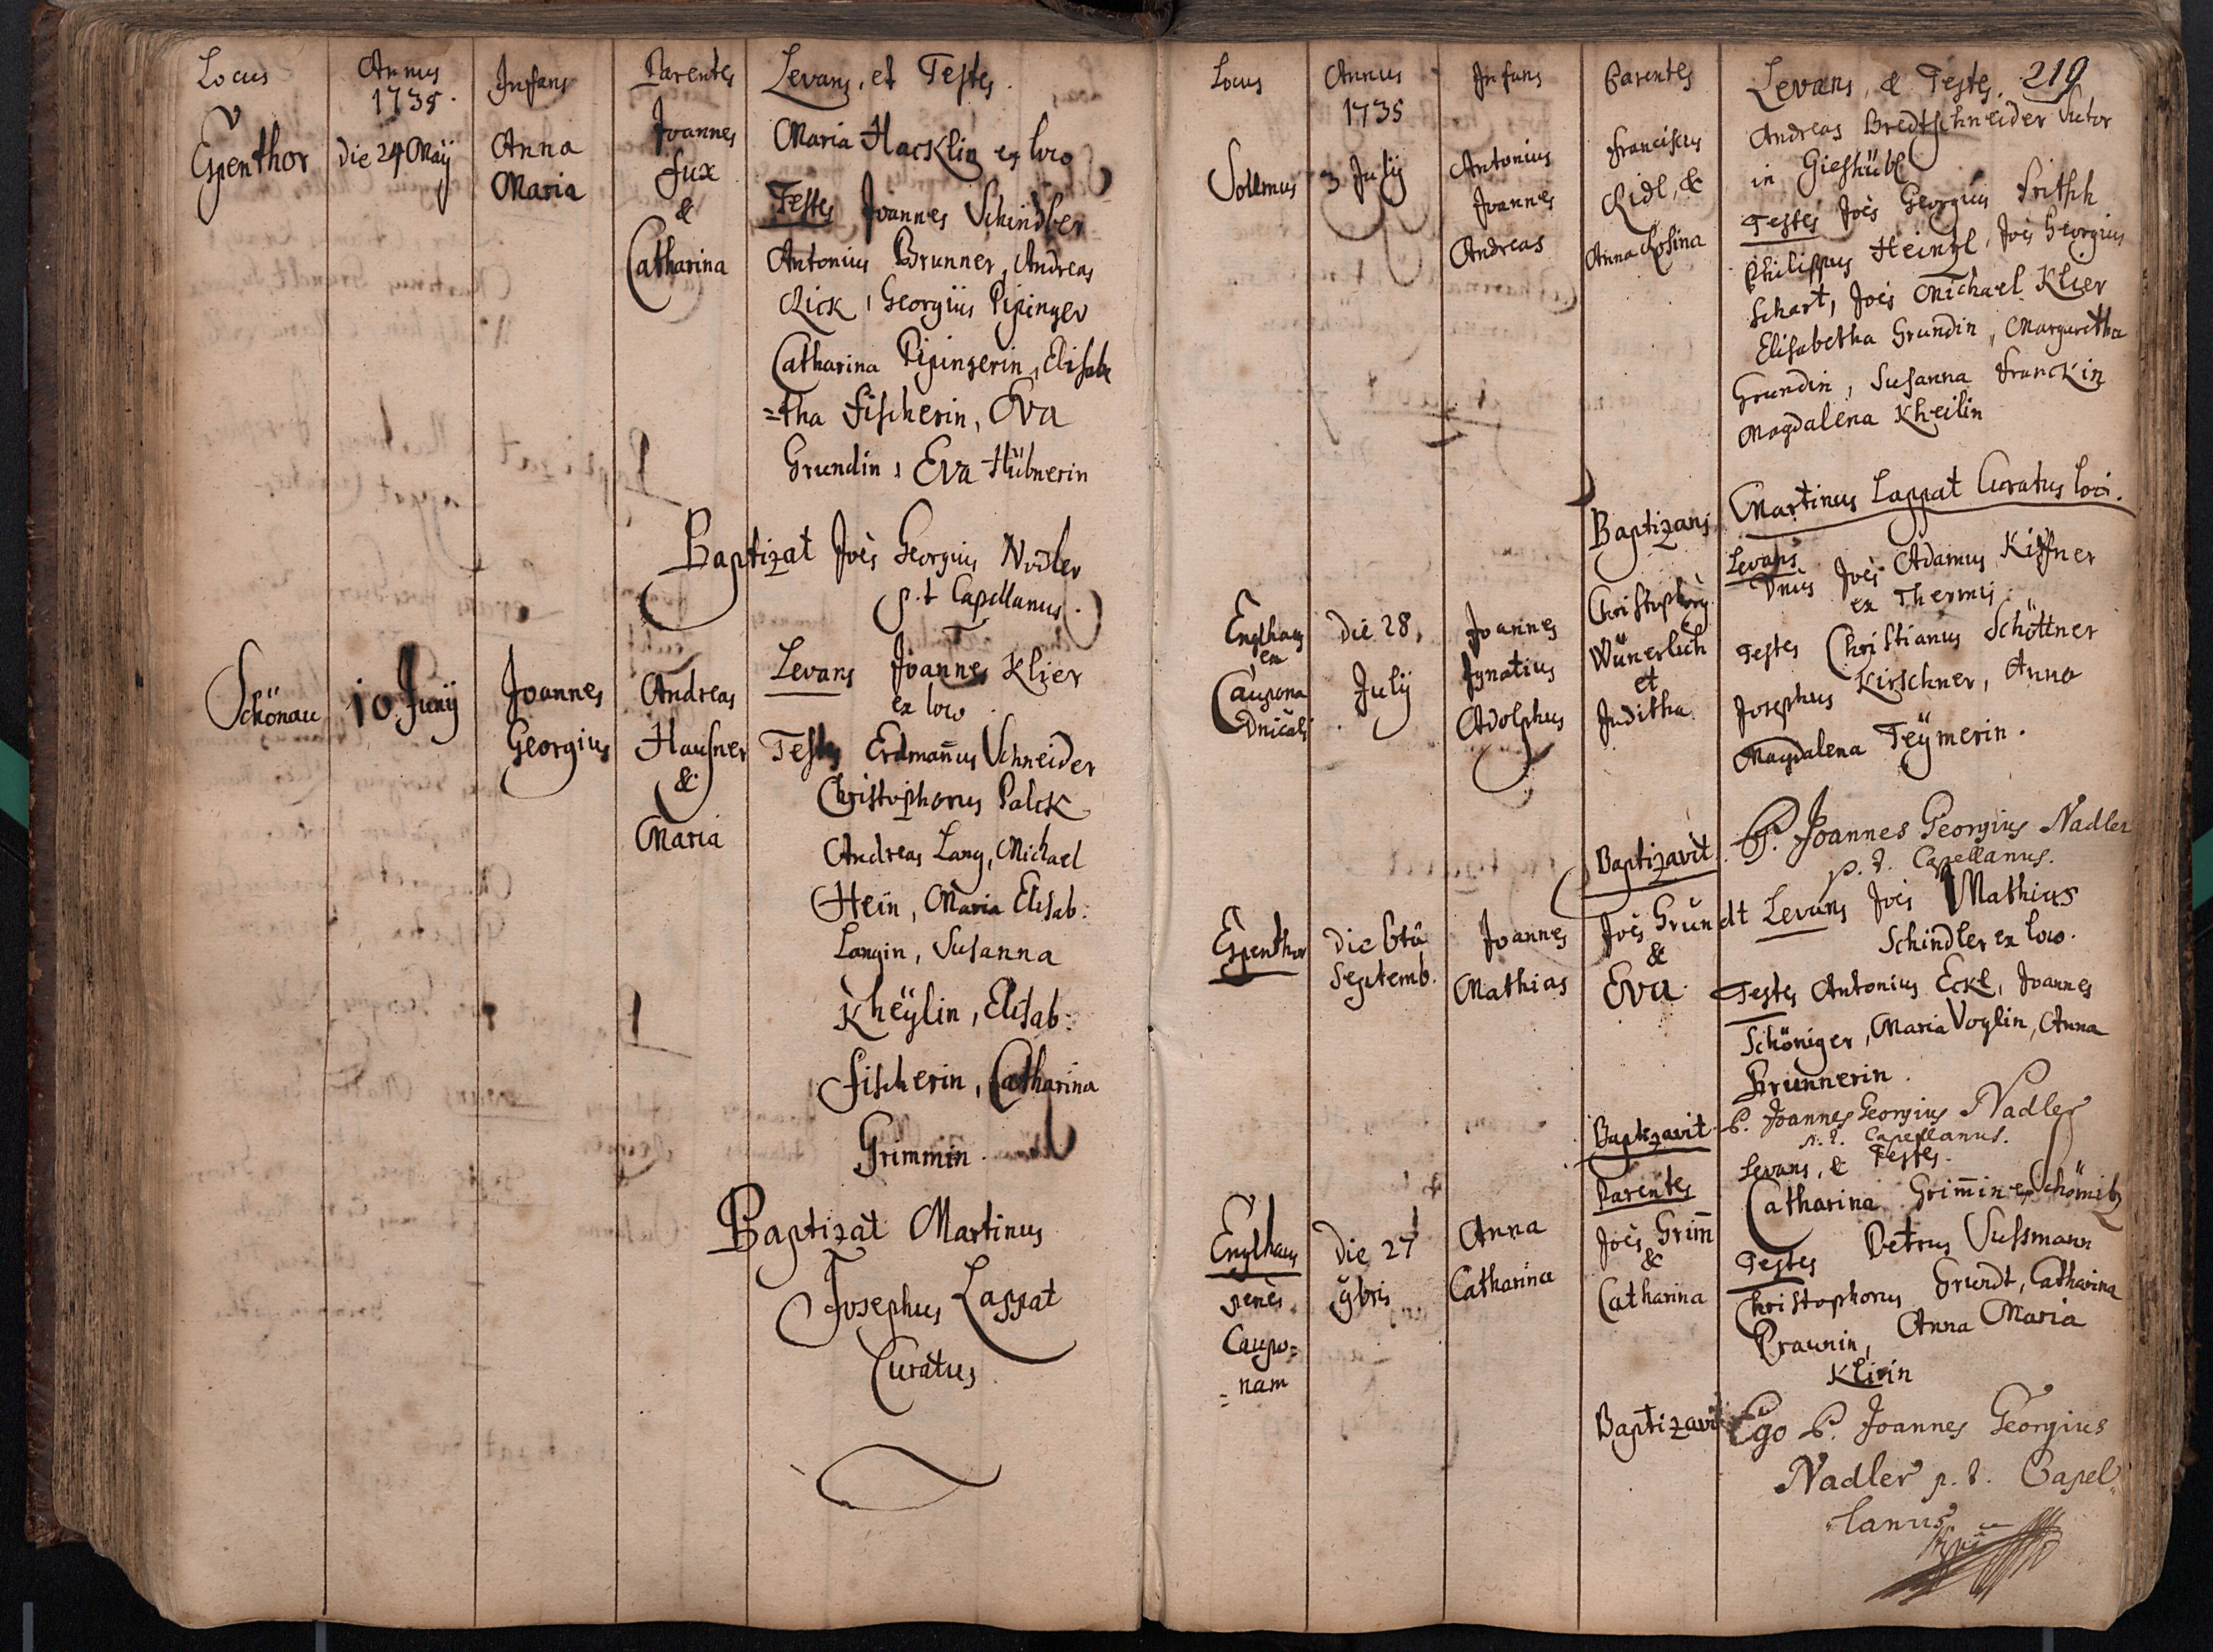 Locus Annus Infans Parentes Levans, et Testes.
1735.
Espenthor die 24 Maÿ Anna Maria
Joannes
Fux
&
Catharina
Maria Hacklin ex loco
Testes Joannes Schindler
Antonius Brunner, Andreas
Rick, Georgius Pipinger
Catharina Pipingerin, Elisabe
=tha Fischerin, Eva
Grundin, Eva Hübnerin
Baptizat Joēs Georgius Nodler
p.t Capellanus.
Schönau 10 Junÿ Joannes
Georgius
Andreas
Hausner
&
Maria
Levans Joannes Klier
ex loco.
Testes Erdman̄us Schneider
Christophorus Palck
Andreas Lang, Michael
Hein, Maria Elisab:
Langin, Susanna
Kheÿlin, Elisab:
Fischerin, Catharina
Grimmin.
Baptizat Martinus
Josephus Lappat
Curatus
Locus Annus Infans Parentes Levans, & Testes. 219
1735
Sollmus 3 Julÿ Antonius
Joannes
Andreas
Franciscus
Ridl, &
Anna Rosina
Andreas Bredtschneider Sutor
in Gieshübl
Testes Joēs Georgius Fritsch
Philippus Heinzl, Joēs Georgius
Schart, Joēs Michael Klier
Elisabetha Grundin, Margaretha
Grundin, Susanna Franckin
Magdalena Kheilin
Baptizans Martinus Lappat Curatus loci.
Englhaus
ex
Caupona
Dnicali
Die 28,
Julÿ
Joannes
Ignatius
Adolphus
Christophorg
Wünerlich
et
Juditha
Levans
Dnus Joēs Adamus Kissner
ex Thermis.
Testes Christianus Schöttner
Josephus Kirschner, Anna
Magdalena Teÿmerin.
Baptizavit. P. Joannes Georgius Nadler
p. t. Capellanus.
Espenthor Die 6ta
Septemb.
Joannes
Mathias
Joēs Grundt
&
Eva
Levans Joēs Mathias
Schindler ex loco.
Testes Antonius Eckl, Joannes
Schöniger, Maria Voglin, Anna
Brunnerin.
Baptizavit P. Joannes Georgius Nadler
p. t. Capellanus.
Levans, & Testes.
Parentes
Englhaus
penes
Caupo=
=nam
Die 27
9bris
Anna
Catharina
Joēs Grim̄
&
Catharina
Catharina Grim̄in ex Schömitz
Testes Petrus Sussmann
Christophorus Grundt, Catharina
Praunin, Anna Maria
Klirin
Baptizavit Ego P. Joannes Georgius
Nadler p. t. Capel
lanus